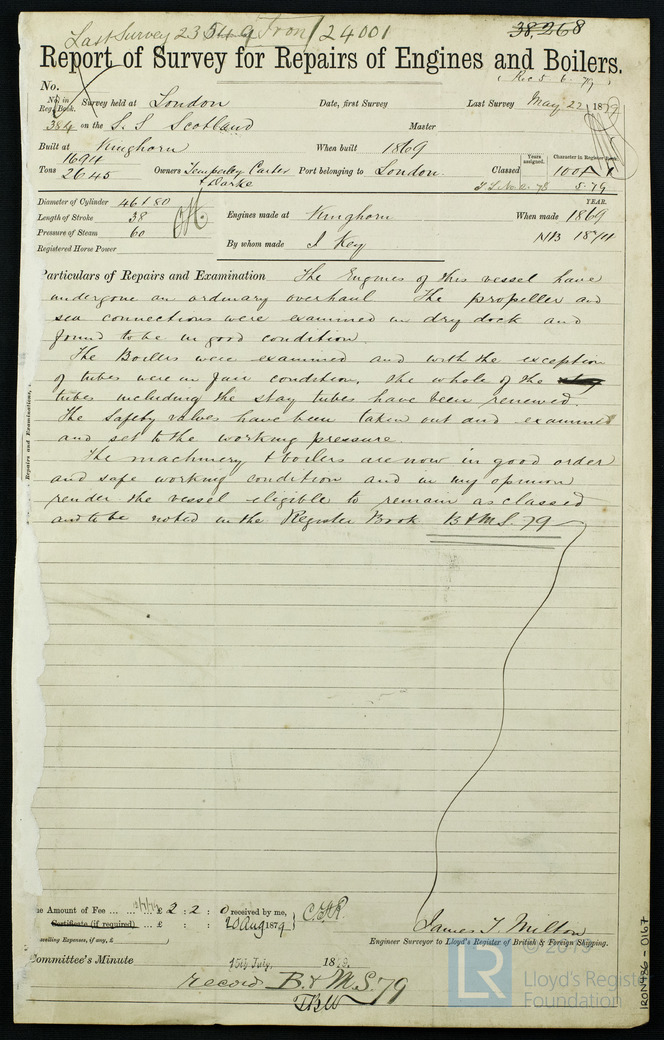 Last Survey 23549 Iron / 24001
38,268
Report of Survey for Repairs of Engines and Boilers.
(Rec 5. 6. 79)
No.
No. in Reg. Book. Survey held at London Date, first Survey Last Survey May 22 1879
384 on the S.S. Scotland Master
Built at Kinghorn When built 1869
Years assigned. Character in Register Book.
Tons 1694 2645 Owners Temperley Carter & Darke Port belonging to London Classed 100 A 1
5.79
Diameter of Cylinder 46 & 80
Length of Stroke 38
Pressure of Steam 60
Registered Horse Power
Engines made at Kinghorn
By whom made J Key
YEAR.
When made 1869
NB 1874
Particulars of Repairs and Examination The Engines of this vessel have
undergone an ordinary overhaul The propeller and
sea connections were examined in dry dock and
found to be in good condition.
The Boilers were examined and with the exception
of tubes were in fair condition. the whole of the
tubes including the stay tubes have been renewed.
The safety valves have been taken out and examined
and set to the working pressure.
The machinery & boilers are now in good order
and safe working condition and in my opinion
render the vessel eligible to remain as classed
and to be noted in the Register Book B & M.S. 79
Repairs and Examinations,
e Amount of Fee ... ... £ 2 : 2 : 0 received by me,
Certificate (if required) ... £ : : 20 Aug 1879
velling Expenses, if any, £
James T. Milton
Engineer Surveyor to Lloyd's Register of British & Foreign Shipping.
Committee's Minute 15th July, 1879.
record B. & M.S. 79
© 2019
LR
Lloyd's Register
Foundation
IRON486-0167